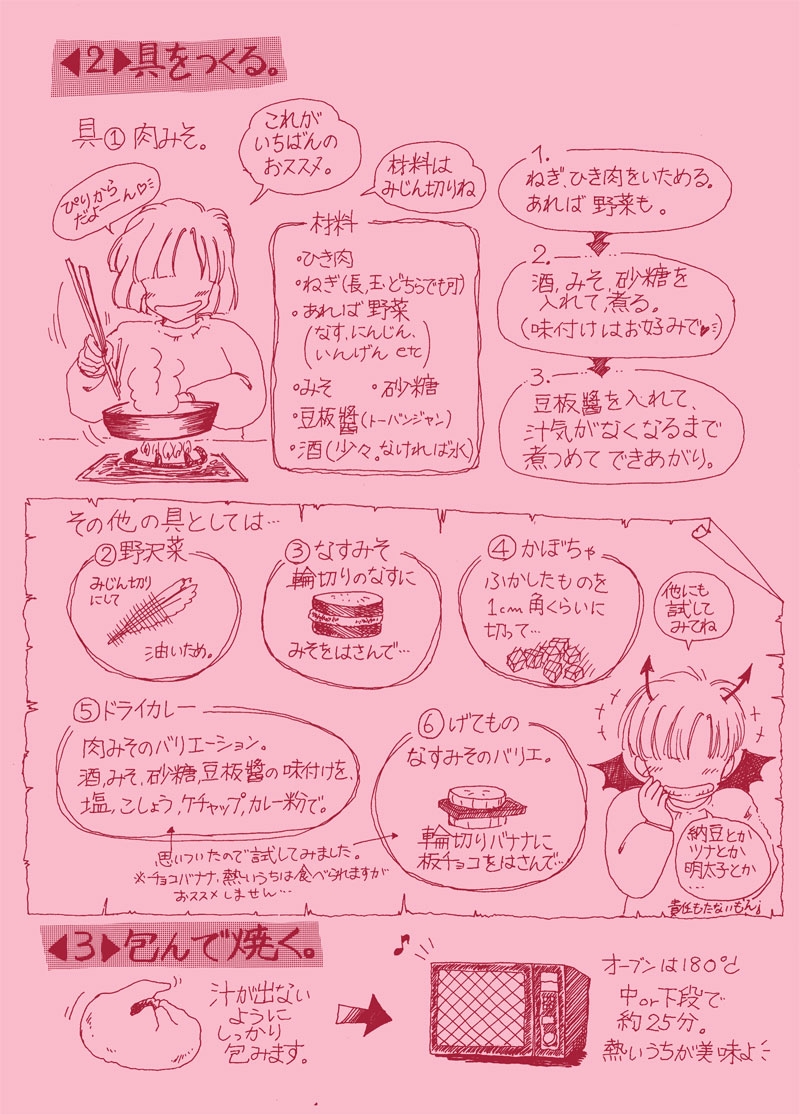 ◀2▶具をつくる。
具①肉みそ。
これが
いちばんの
おススメ。
材料は
みじん切りね
ぴりから
だよーーん♡
材料
・ひき肉
・ねぎ(長、玉、どちらでも可)
・あれば野菜
(なす、にんじん、
いんげん etc)
・みそ ・砂糖
・豆板醬(トーバンジャン)
・酒(少々。なければ水)
1.
ねぎ、ひき肉をいためる。
あれば野菜も。
2.
酒、みそ、砂糖を
入れて、煮る。
(味付けはお好みで♥)
3.
豆板醬を入れて、
汁気がなくなるまで
煮つめてできあがり。
その他の具としては…
②野沢菜
みじん切り
にして
油いため。
③なすみそ
輪切りのなすに
みそをはさんで…
④かぼちゃ
ふかしたものを
1cm角くらいに
切って…
他にも
試して
みてね
⑤ドライカレー
肉みそのバリエーション。
酒、みそ、砂糖、豆板醬の味付けを、
塩、こしょう、ケチャップ、カレー粉で。
⑥げてもの
なすみそのバリエ。
輪切りバナナに
板チョコをはさんで…
思いついたので試してみました。
※チョコバナナ、熱いうちは食べられますが
おススメしません…
納豆とか
ツナとか
明太子とか
…
責任もたないもん♩
◀3▶包んで焼く。
汁が出ない
ように
しっかり
包みます。
♪
オーブンは180℃
中or下段で
約25分。
熱いうちが美味よ